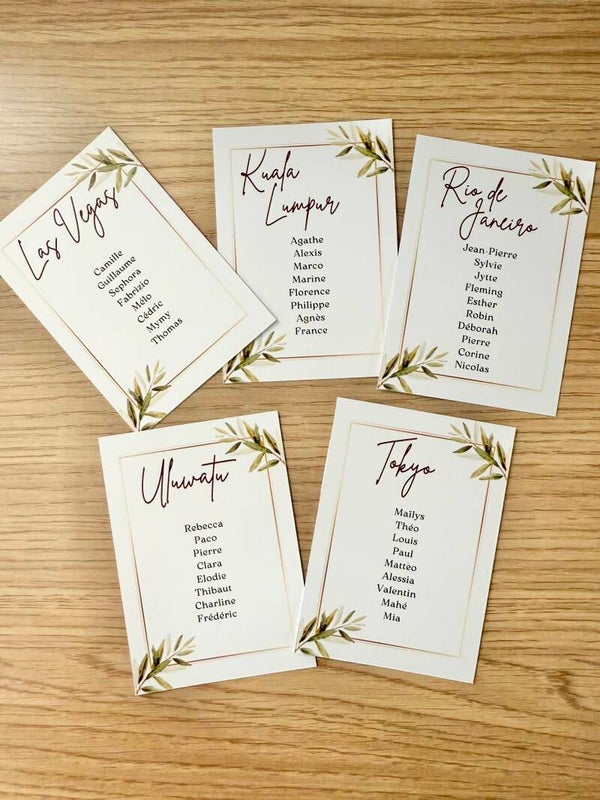 Las Vegas
Camille
Guillaume
Sephora
Fabrizio
Mélo
Cédric
Mymy
Thomas
Kuala
Lumpur
Agathe
Alexis
Marco
Marine
Florence
Philippe
Agnès
France
Rio de
Janeiro
Jean-Pierre
Sylvie
Jytte
Fleming
Esther
Robin
Déborah
Pierre
Corine
Nicolas
Uluwatu
Rebecca
Paco
Pierre
Clara
Elodie
Thibaut
Charline
Frédéric
Tokyo
Maïlys
Théo
Louis
Paul
Mattèo
Alessia
Valentin
Mahé
Mia